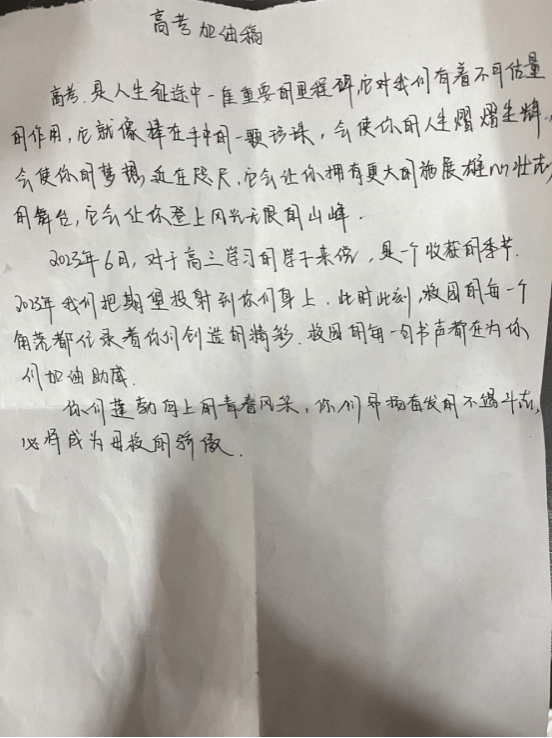 高考加油稿
高考,是人生征途中一座重要的里程碑,它对我们有着不可估量
的作用,它就像捧在手中的一颗珍珠,会使你的人生熠熠生辉,
会使你的梦想近在咫尺,它会让你拥有更大的施展雄心壮志
的舞台,它会让你登上风光无限的山峰.
2023年6月,对于高三学习的学子来说,是一个收获的季节.
2023年我们把期望投射到你们身上.此时此刻,校园的每一个
角落都记录着你们创造的精彩.校园的每一句书声都在为你
们加油助威.
你们蓬勃向上的青春风采,你们昂扬奋发的不竭斗志,
必将成为母校的骄傲.